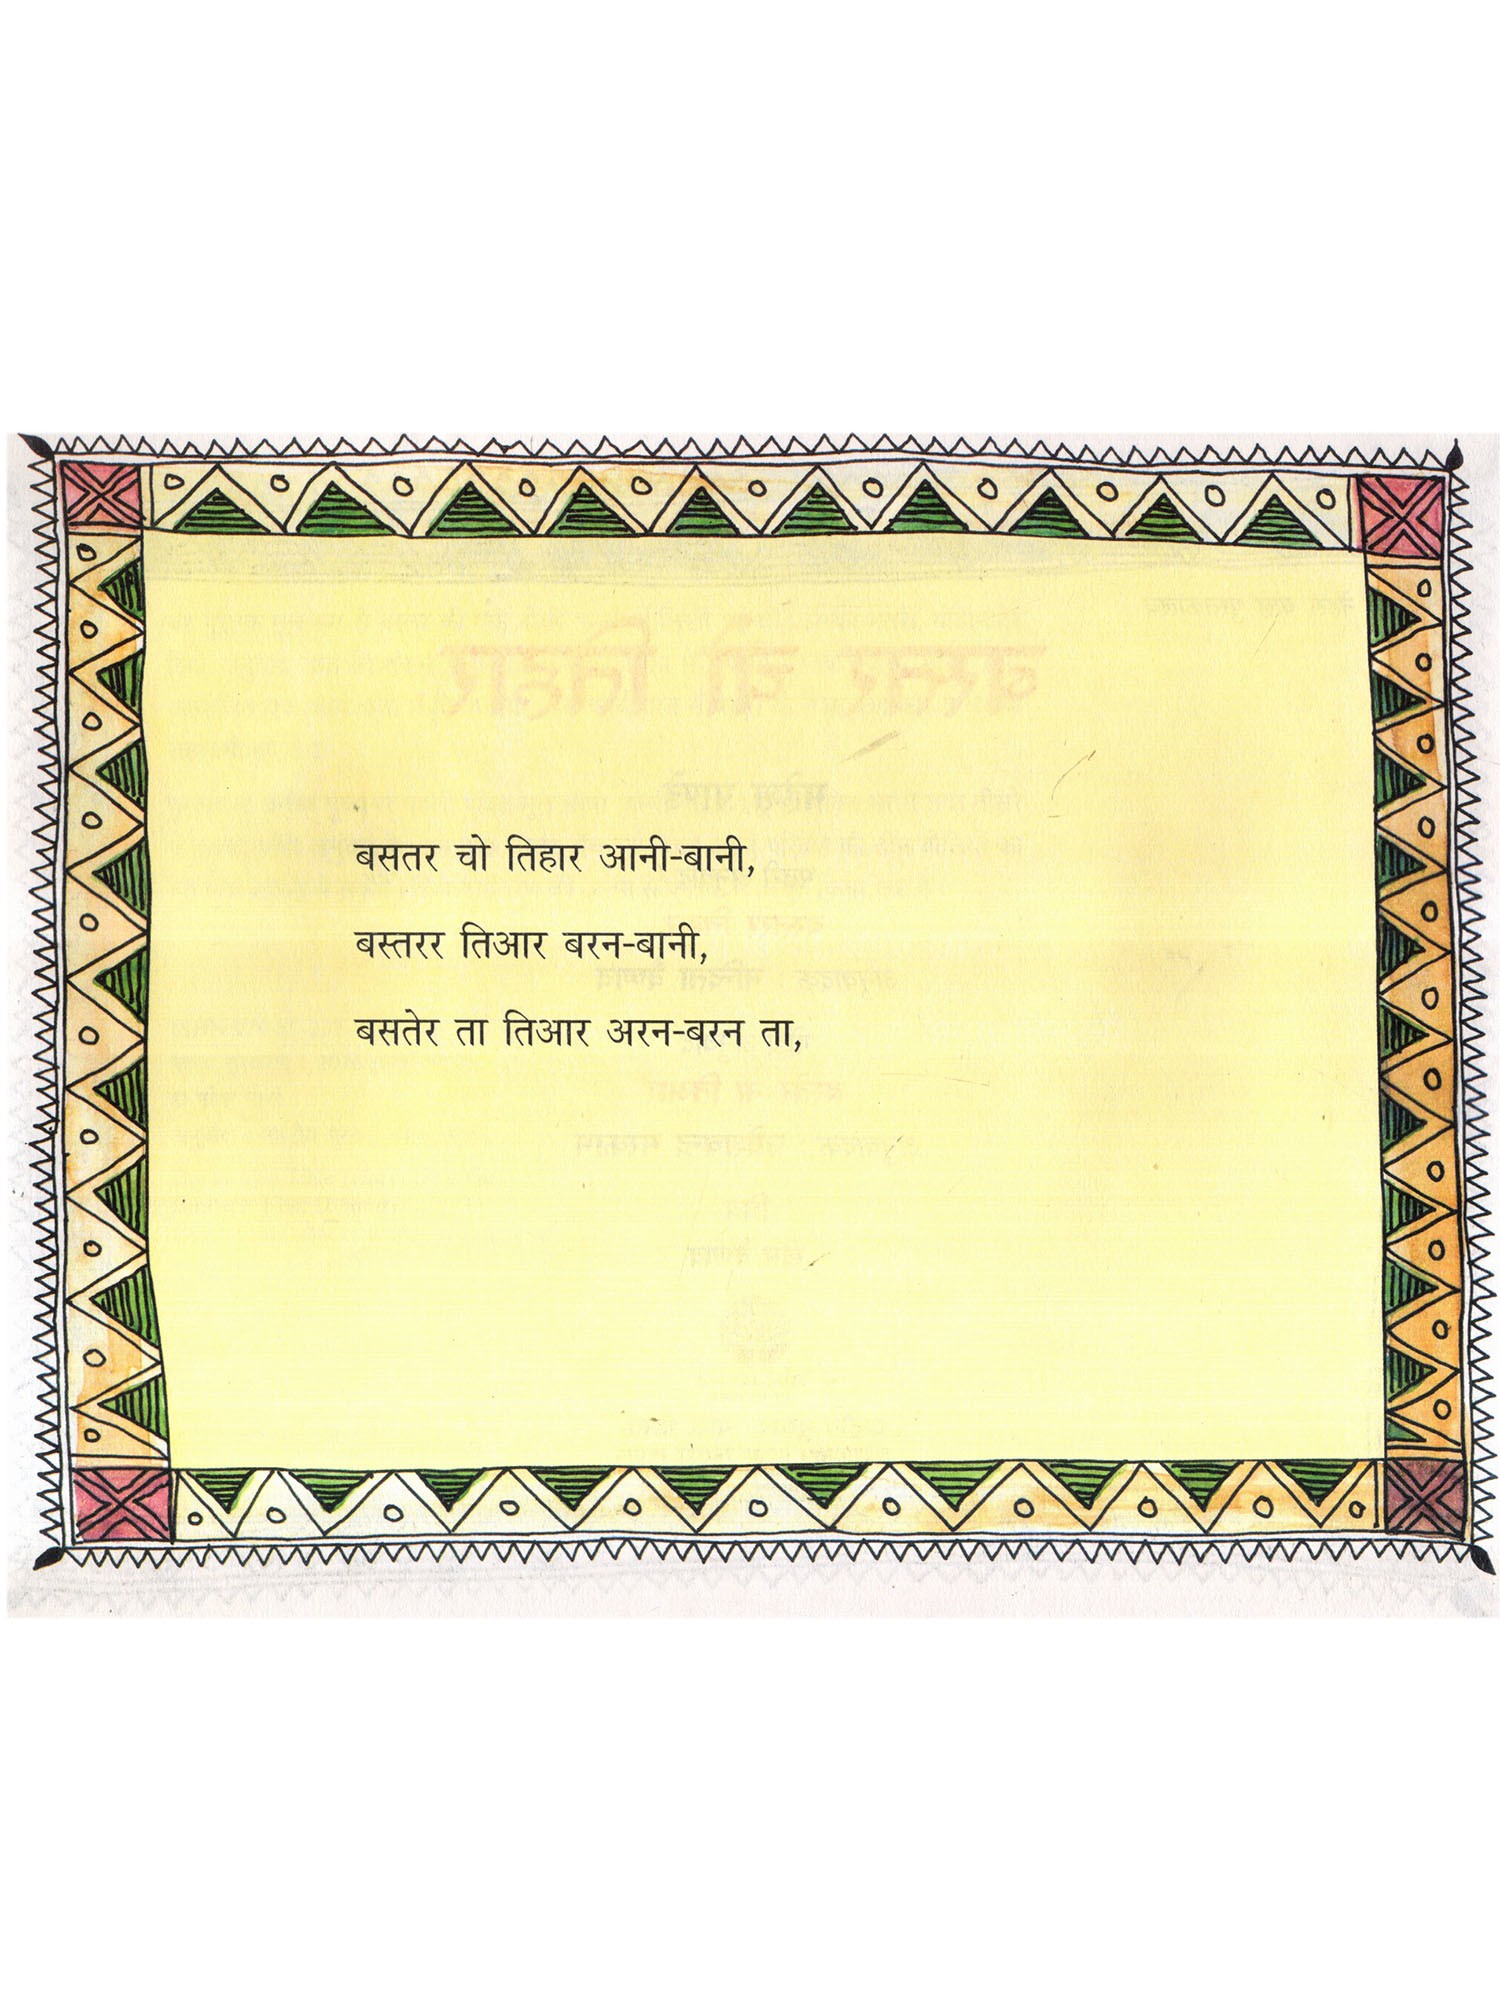 बसतर चो तिहार आनी-बानी,
बस्तरर तिआर बरन-बानी,
बसतेर ता तिआर अरन-बरन ता,